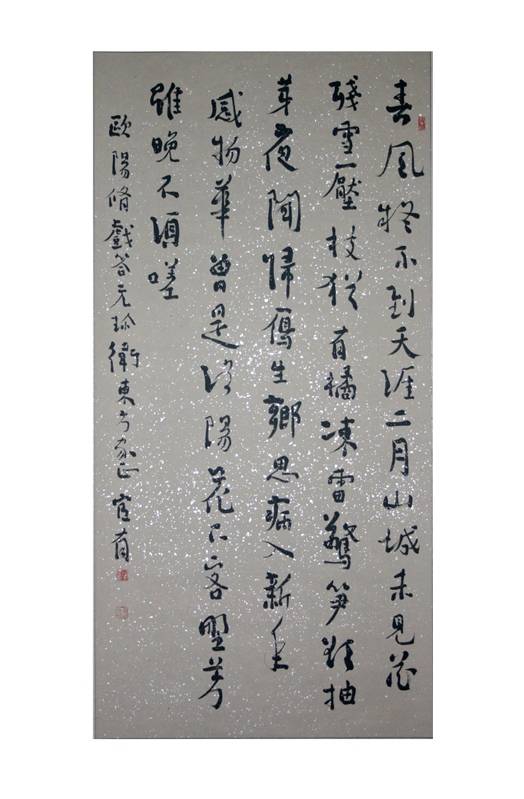 春風疑不到天涯二月山城未見花
殘雪壓枝猶有橘凍雷驚笋欲抽
芽夜聞歸雁生鄉思病入新年
感物華曾是洛陽花下客野芳
雖晚不須嗟
歐陽脩戲答元珍衛東方家正